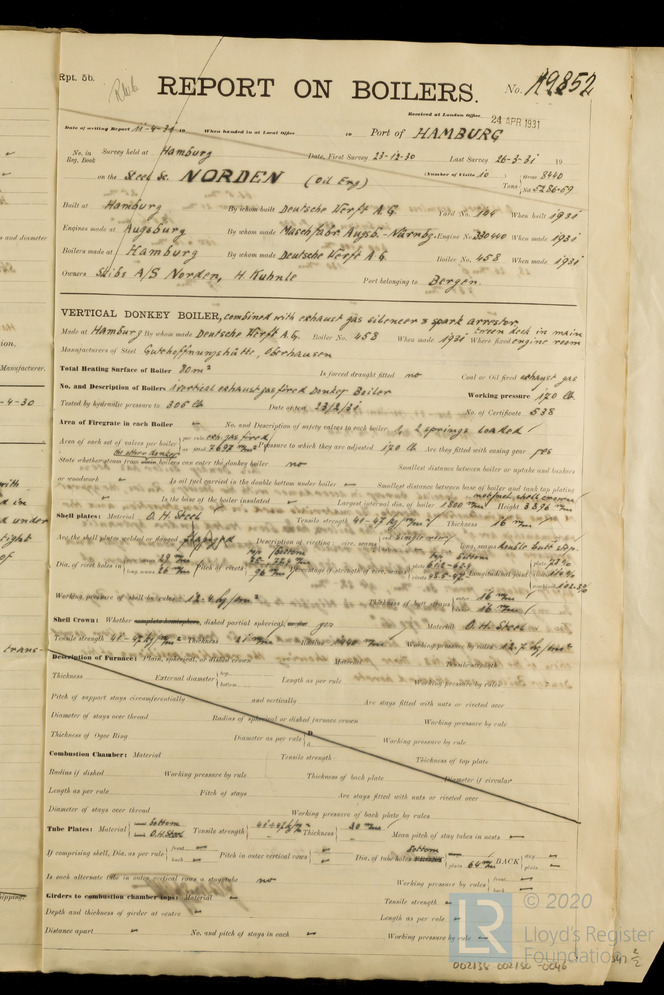 Rpt. 5b.
REPORT ON BOILERS.
No. 19852
Received at London Office 24 APR 1931
Date of writing Report 11-4-31 19 When handed in at Local Office 19 Port of HAMBURG
No. in Reg. Book Survey held at Hamburg Date, First Survey 23-12-30 Last Survey 26-3-31 19
(Number of Visits 10
on the Steel Sc. NORDEN (Oil Eng) Tons Gross 8440 Net 5286-69
Built at Hamburg By whom built Deutsche Werft A.G. Yard No. 164 When built 1931
Engines made at Augsburg By whom made Maschfabr. Augsb.-Nürnbg. Engine No. 330440 When made 1931
Boilers made at Hamburg By whom made Deutsche Werft A.G. Boiler No. 458 When made 1931
Owners Skibs A/S Norden, H Kuhnle Port belonging to Bergen.
VERTICAL DONKEY BOILER, combined with exhaust gas silencer & spark arrester
Made at Hamburg By whom made Deutsche Werft A.G. Boiler No. 458 When made 1931 Where fixed tween deck in main engine room
Manufacturers of Steel Gutehoffnungshütte, Oberhausen
Total Heating Surface of Boiler 80 m² Is forced draught fitted no Coal or Oil fired exhaust gas
No. and Description of Boilers 1 vertical exhaust gas fired Donkey Boiler Working pressure 170 lb
Tested by hydraulic pressure to 305 lb Date of test 23/2/31 No. of Certificate 538
Area of Firegrate in each Boiler exh. gas fired No. and Description of safety valves to each boiler 1, 2 springs loaded
Area of each set of valves per boiler per rule as fitted 7697 m/m² Pressure to which they are adjusted 170 lb Are they fitted with easing gear yes
State whether steam from main boilers can enter the donkey boiler no Smallest distance between boiler or uptake and bunkers
or woodwork Is oil fuel carried in the double bottom under boiler Smallest distance between base of boiler and tank top plating
Is the base of the boiler insulated Largest internal dia. of boiler 1800 m/m Height 3396 m/m
Shell plates: Material O.H. Steel Tensile strength 41-47 kg/m/m² Thickness 16 m/m
Are the shell plates welded or flanged flanged Description of riveting: circ. seams single riv. long. seams double butt strap.
Dia. of rivet holes in Pitch of rivets Percentage of strength of circ. seams Longitudinal joint
Working pressure of shell by rules 12.4 kg/cm² Thickness of butt straps outer 16 m/m inner 16 m/m
Shell Crown: Whether complete hemisphere, dished partial spherical, or flat yes Material O.H. Steel
Tensile strength 41-47 kg/m/m² Thickness Radius Working pressure by rules 12.7 kg/cm²
Description of Furnace: Plain, spherical, or dished crown Material Tensile strength
Thickness External diameter top bottom Length as per rule Working pressure by rules
Pitch of support stays circumferentially and vertically Are stays fitted with nuts or riveted over
Diameter of stays over thread Radius of spherical or dished furnace crown Working pressure by rule
Thickness of Ogee Ring Diameter as per rule D d Working pressure by rule
Combustion Chamber: Material Tensile strength Thickness of top plate
Radius if dished Working pressure by rule Thickness of back plate Diameter if circular
Length as per rule Pitch of stays Are stays fitted with nuts or riveted over
Diameter of stays over thread Working pressure of back plate by rules
Tube Plates: Material bottom O.H. Steel Tensile strength 41-47 kg/m/m² Thickness 30 m/m Mean pitch of stay tubes in nests
If comprising shell, Dia. as per rule front back Pitch in outer vertical rows Dia. of tube holes bottom plain 64 m/m BACK stay plain
Is each alternate tube in outer vertical rows a stay tube no Working pressure by rules front back
Girders to combustion chamber tops: Material Tensile strength
Depth and thickness of girder at centre Length as per rule
Distance apart No. and pitch of stays in each Working pressure by rule
LR © 2020
Lloyd's Register
Foundation
002138-002150-0046